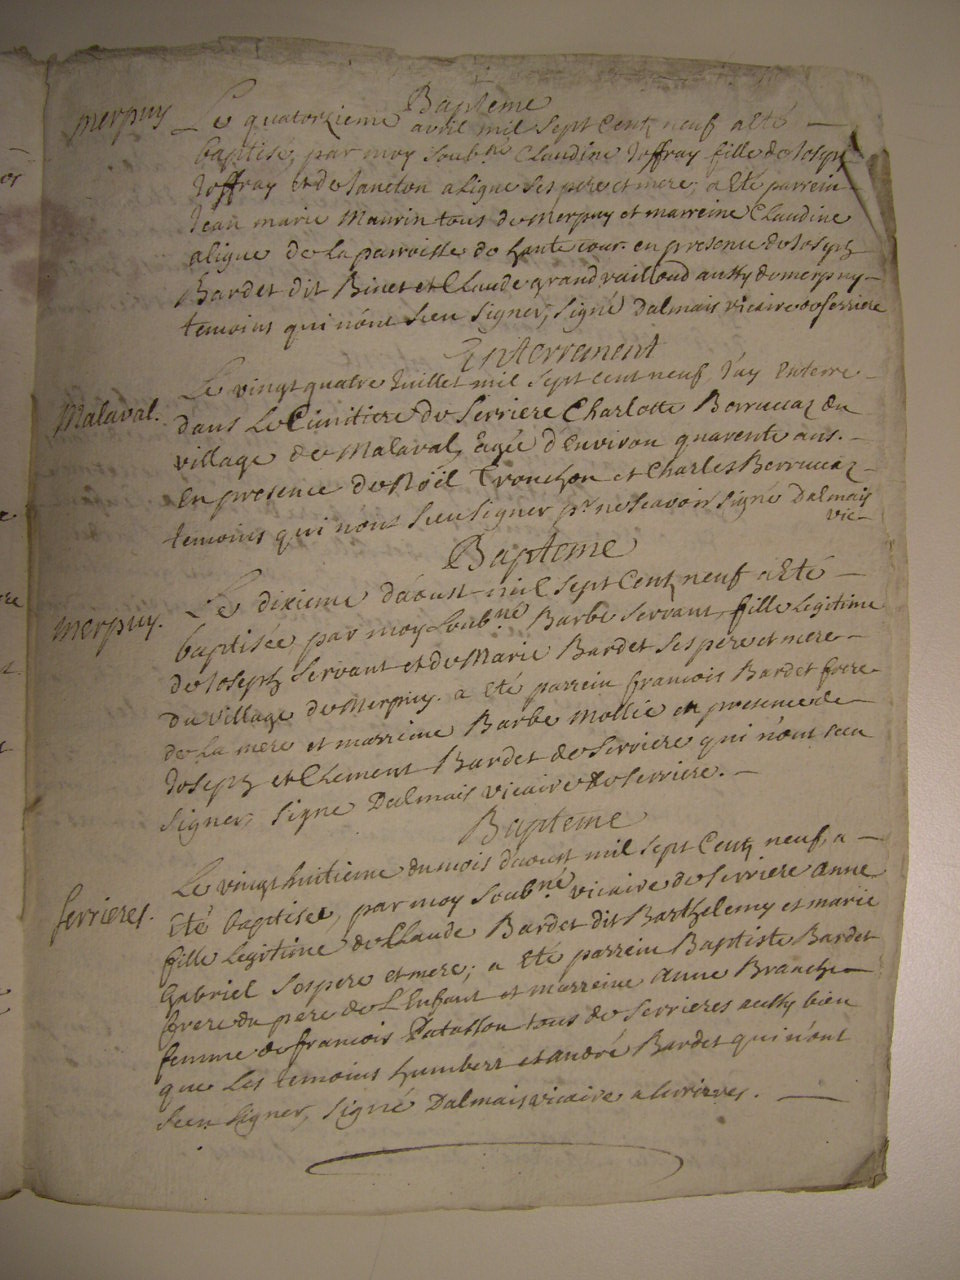 Bapteme
merpuy
Le quatorzieme avril mil sept centz neuf a eté
baptisé, par moy soub.né Claudine Joffray fille de Joseph
Joffray et de Janeton aligue ses pere et mere; a eté parrein
Jean marie Maurin tous de Merpuy et marreine Claudine
aligue de la parroisse de haute cour en presence de Joseph
Bardet dit Binet et Claude grand aussy de merpuy
temoins qui n'ont sceu signer, signé Dalmais vicaire de serriere
Enterrement
Malaval.
Le vingt quatre Juillet mil sept cent neuf J'ay enterre
dans Le Cimitiere de Serriere Charlotte Berruccaz du
village de Malaval, agée d'Environ quarente ans.
En presence de Noïl Tronchon et Charles Berruccaz
temoins qui n'ont sceu signer pr ne scavoir signé Dalmais
vic
Bapteme
Merpuy.
Le dixieme d'aoust mil sept centz neuf a eté
baptisée, par moy soub.né Barbe Servant, fille legitime
de Joseph Servant et de Marie Bardet ses pere et mere
du village de Merpuy. a eté parrein francois Bardet frere
de la mere et marreine Barbe Mollie en presence de
Joseph et Clement Bardet de Serriere qui n'ont sceu
signer, signe Dalmais vicaire de serriere.
Bapteme
serrieres.
Le vingt huitieme du mois d'aoust mil sept Centz neuf, a
eté baptisée, par moy soub.né vicaire de serriere anne
fille legitime de Claude Bardet dit Barthelemy et marie
gabriel ses pere et mere; a eté parrein Baptiste Bardet
frere du pere de L'Enfant et marreine anne Branche
femme de francois Patasson tous de serrieres aussy bien
que les temoins humbert et andré Bardet qui n'ont
sceu signer, signé Dalmais vicaire a serrieres.